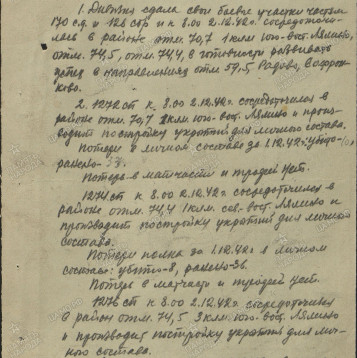 1. Дивизия сдала свои боевые участки частям
170 с.д. и 126 сбр и к 8.00 2.12.42г. сосредоточи-
лась в районе отм. 70,7 1клм юго-вост. Лялино,
отм. 74,5, отм. 74,4, в готовности развивать
успех в направлениях отм 59,5 Радово,
ково.
2. 1272 сп к 8.00 2.12.42г. сосредоточился в
районе отм. 70,7 2клм. юго-вост. Лялино и произ-
водит постройку укрытий для личного состава.
Потери в личном составе за 1.12.42г: убито
ранено
Потерь в матчасти и трофей нет.
1274 сп к 8.00 2.12.42г сосредоточился в
районе отм. 74,4 1клм. сев.-вост. Лялино и
производит постройку укрытий для личного
состава.
Потери полка за 1.12.42г в личном
составе: убито-8, ранено-36.
Потерь в матчасти и трофей нет.
1276 сп к 8.00 2.12.42г. сосредоточился
в район отм. 74,5 3клм. юго-вост. Лялино
и производит постройку укрытий для лич-
ного состава.